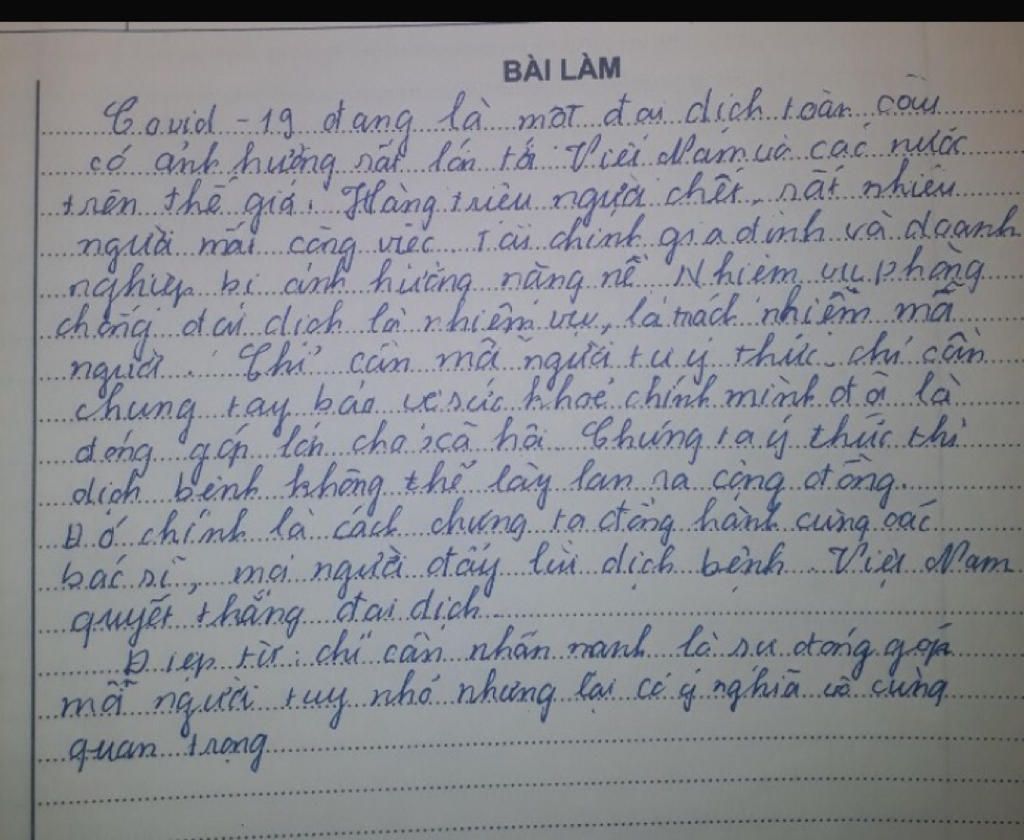 BÀI LÀM
Covid - 19 đang là một đại dịch toàn cầu
có ảnh hưởng rất lớn tới Việt Nam và các nước
trên thế giới. Hàng triệu người chết, rất nhiều
người mất công việc. Tài chính gia đình và doanh
nghiệp bị ảnh hưởng nặng nề. Nhiệm vụ phòng
chống đại dịch là nhiệm vụ, là trách nhiệm mỗi
người. Chỉ cần mỗi người tự ý thức, chỉ cần
chung tay bảo vệ sức khoẻ chính mình đó là
đóng góp lớn cho xã hội. Chúng ta ý thức thì
dịch bệnh không thể lây lan ra cộng đồng.
Đó chính là cách chúng ta đồng hành cùng các
bác sĩ, mọi người đẩy lùi dịch bệnh. Việt Nam
quyết thắng đại dịch.
Điệp từ: chỉ cần nhấn mạnh là sự đóng góp
mỗi người tuy nhỏ nhưng lại có ý nghĩa vô cùng
quan trọng